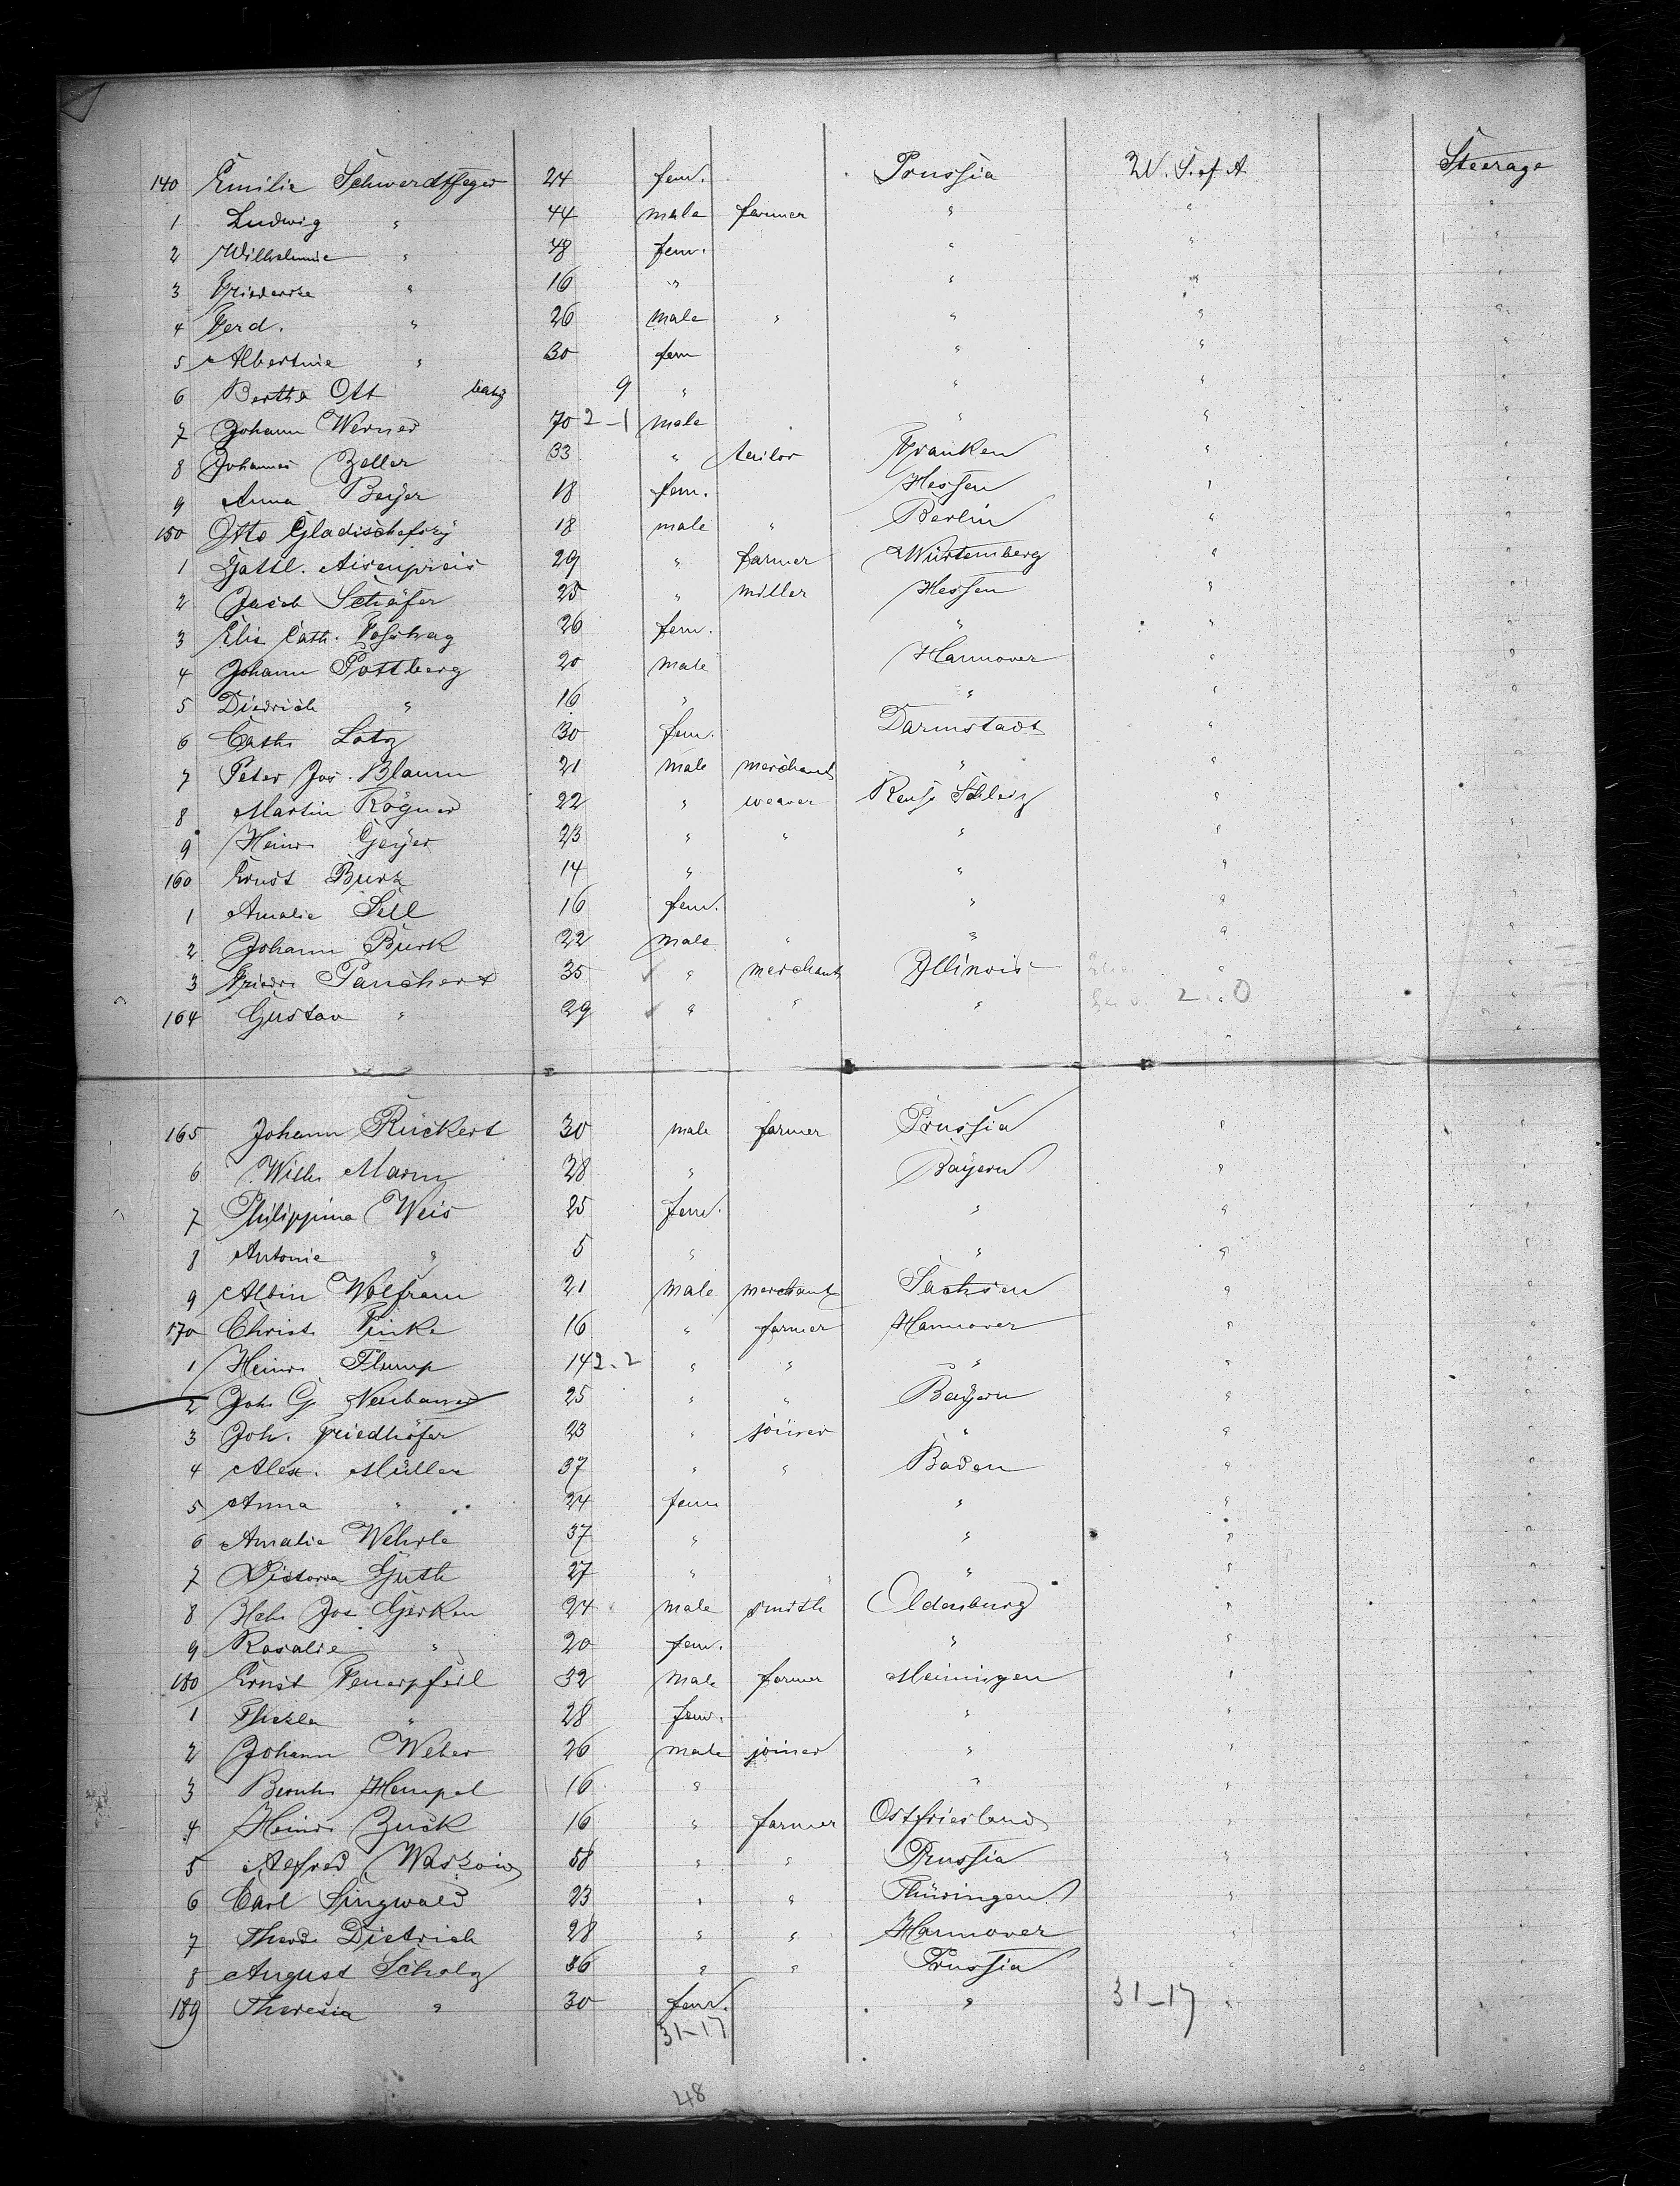 140 Emilie Schwerdtfeger 24 fem. Prussia U. S. of A. Steerage
1 Ludwig " 44 male farmer " " "
2 Wilhelmine " 48 fem. " " "
3 Friederike " 16 " " " "
4 Ferd. " 26 male " " " "
5 Albertine " 30 fem " " "
6 Bertha Ott baby 9 " " " "
7 Johann Werner 70 2-1 male " " "
8 Johannes Zeller 33 " tailor Franken " "
9 Anna Beyer 18 fem. Hessen " "
150 Otto Gladischefsky 18 male " Berlin " "
1 Gottl. Aisenpreis 29 " farmer Würtemberg " "
2 Jacob Schäfer 25 " miller Hessen " "
3 Elis. Cath. 26 fem. " " "
4 Johann Pottberg 20 male Hannover " "
5 Diedrich " 16 " " " "
6 Cath. Lotz 30 fem. Darmstadt " "
7 Peter Jos. Blaum 21 male merchant " " "
8 Martin Rögner 22 " weaver Reuss Schleiz " "
9 Heinr. Geyer 23 " " " " "
160 Ernst Burk 14 " " " "
1 Amalie Sell 16 fem. " " "
2 Johann Burk 22 male " " " "
3 Friedr. Panchert 35 " merchant Illinois " "
164 Gustav " 29 " " " 2 " 0 "
165 Johann Rückert 30 male farmer Prussia " "
6 Wilh. Mann 28 " Bayern " "
7 Philippina Weis 25 fem. " " "
8 Antonie " 5 " " " "
9 Albin Wolfram 21 male merchant Sachsen " "
170 Christ. Finke 16 " farmer Hannover " "
1 Heinr. Flump 14 2-2 " " " " "
2 Joh. G. Neubauer 25 " " Bayern " "
3 Joh. Friedhöfer 23 " joiner " " "
4 Alex. Müller 37 " " Baden " "
5 Anna " 24 fem " " "
6 Amalie Wehrle 37 " " " "
7 Victoria Guth 27 " " " "
8 Hch. Jos. Gerken 24 male smith Oldenburg " "
9 Rosalie " 20 fem. " " "
180 Ernst Feuerpfeil 32 male farmer Meiningen " "
1 Thekla " 28 fem. " " "
2 Johann Weber 26 male joiner " " "
3 Bernh. Hempel 16 " " " "
4 Heinr. Zuck 16 " farmer Ostfriesland " "
5 Alfred 58 " " Prussia " "
6 Carl Singwald 23 " " Thüringen " "
7 Theod. Dietrich 28 " " Hannover " "
8 August Scholz 36 " " Prussia " "
189 Theresia " 30 fem. " 31-17 " "
31-17
48